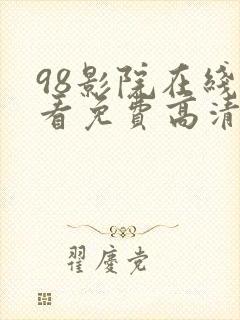 98影院在线
看免费高清
翟庆党